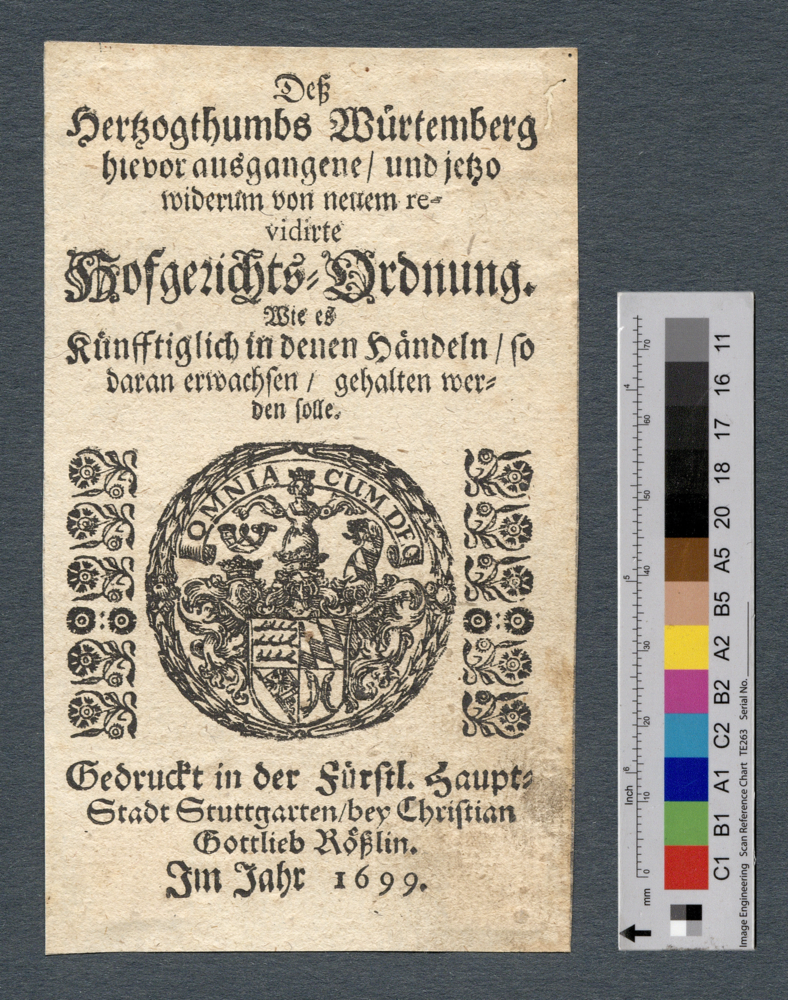 Deß
Hertzogthumbs Würtemberg
hievor ausgangene / und jetzo
widerüm von neuem re-
vidirte
Hofgerichts-Ordnung.
Wie es
Künfftiglich in denen Händeln / so
daran erwachsen / gehalten wer-
den solle.
OMNIA CUM DEO
Gedruckt in der Fürstl. Haupt-
Stadt Stuttgarten/bey Christian
Gottlieb Rößlin.
Im Jahr 1699.
11
16
17
18
20
A5
B5
A2
B2
C2
A1
B1
C1
mm
10
20
30
40
50
60
70
Inch
4
5
6
Image Engineering Scan Reference Chart TE263 Serial No.